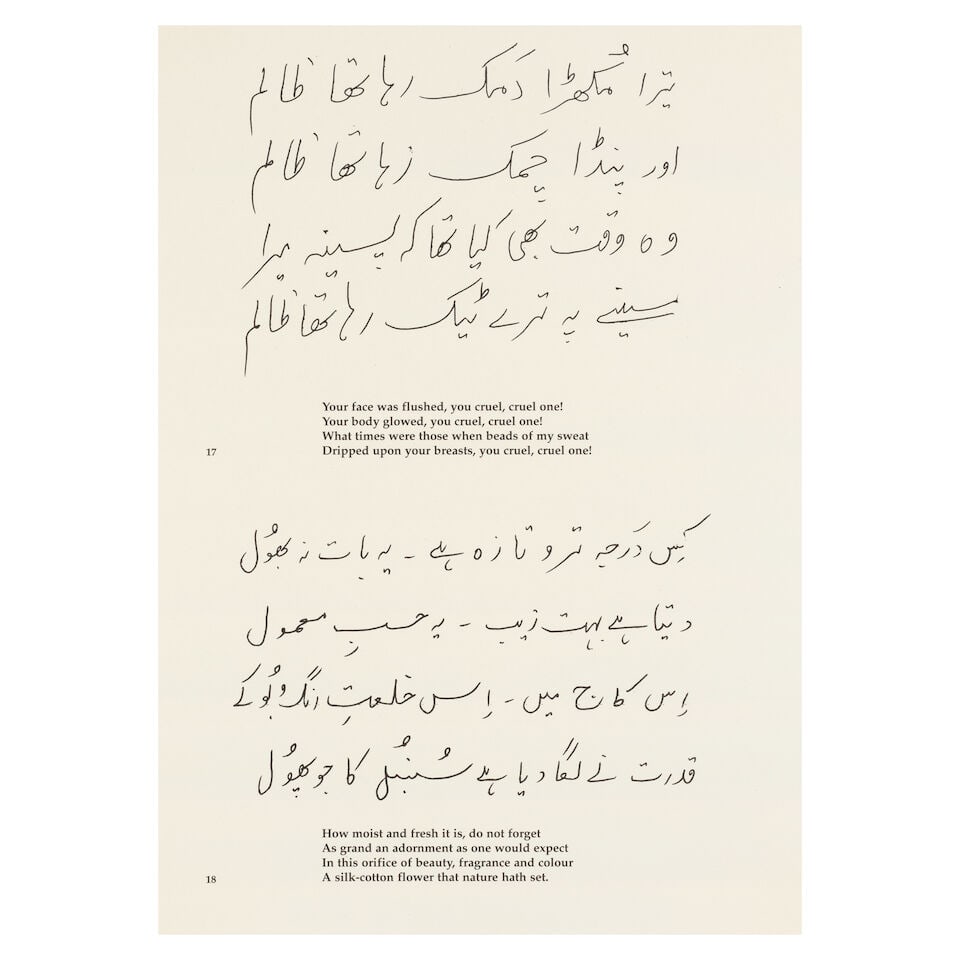 تیرا مُکھڑا دَمک رہا تھا ظالم
اور پنڈا چمک رہا تھا ظالم
وہ وقت بھی کیا تھا کہ پسینہ میرا
سینے پہ ترے ٹپک رہا تھا ظالم
Your face was flushed, you cruel, cruel one!
Your body glowed, you cruel, cruel one!
What times were those when beads of my sweat
17 Dripped upon your breasts, you cruel, cruel one!
کِس دَرجہ تر و تازہ ہے ۔ یہ بات نہ بھُول
دیتا ہے بہت زیب ۔ یہ حسبِ معمول
اِس کاج میں ۔ اِس خلعتِ رنگ و بُو کے
قدرت نے لگا دیا ہے سُنبُل کا جو پھُول
How moist and fresh it is, do not forget
As grand an adornment as one would expect
In this orifice of beauty, fragrance and colour
18 A silk-cotton flower that nature hath set.